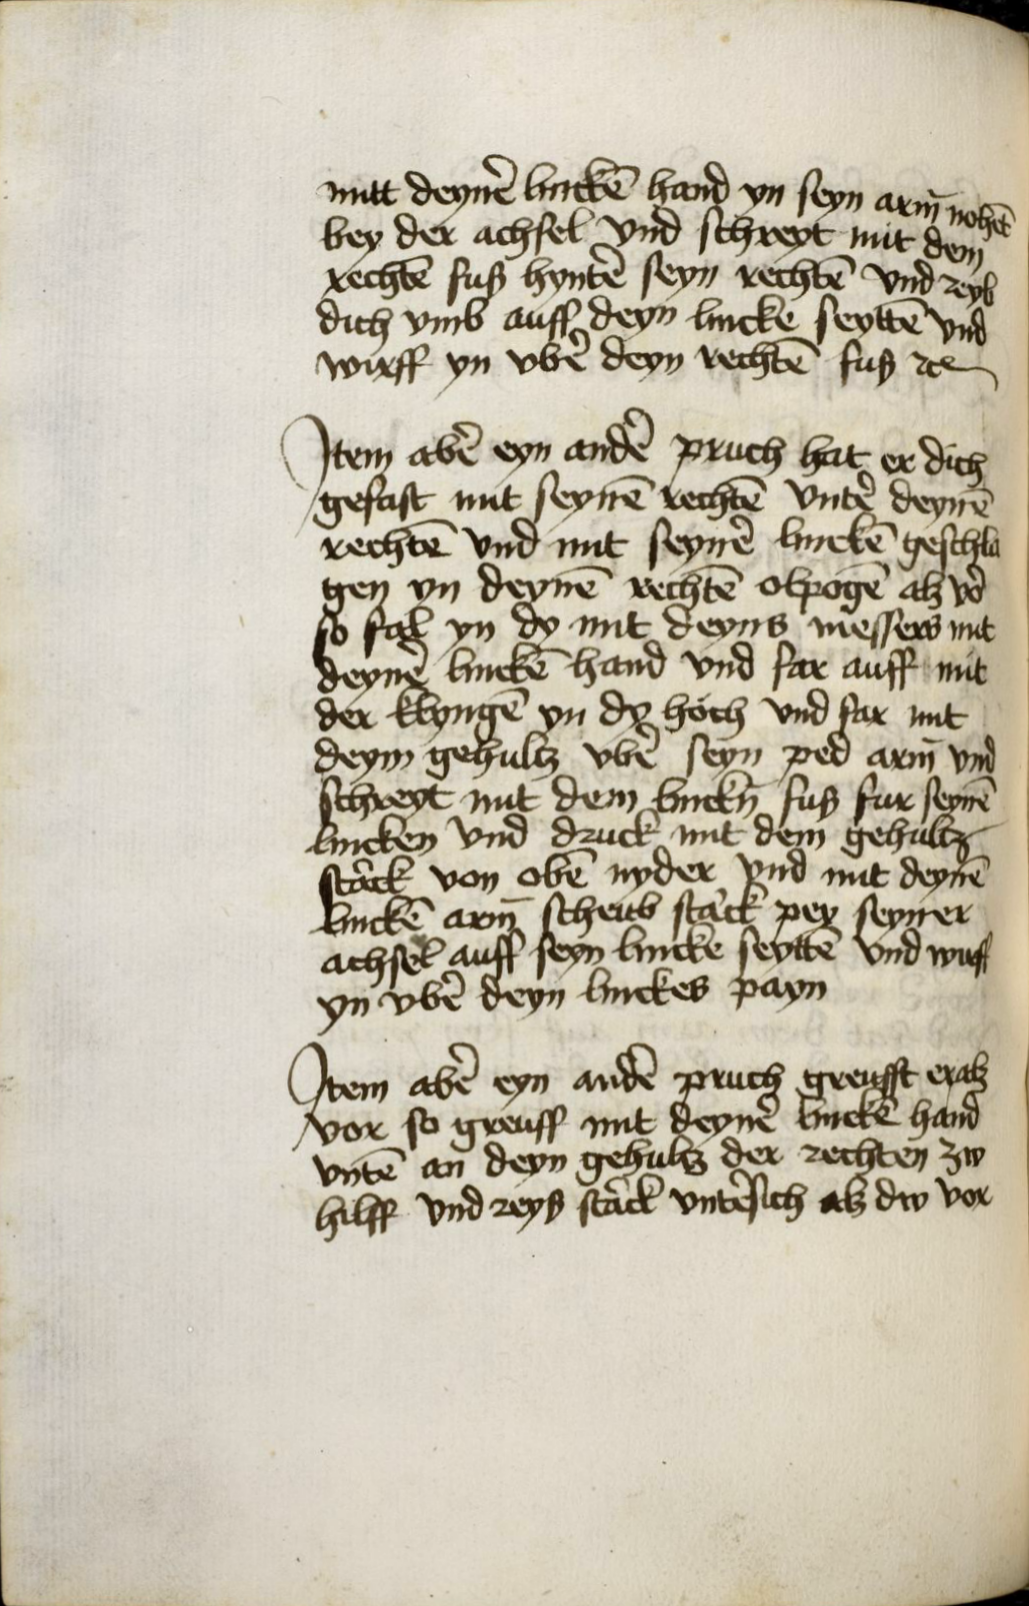 mitt deynẽ linckē hand yn seyn arm̄ nohēt
bey der achsel vnd schreyt mit dem
rechtē fuß hyntẽ seyn rechtē vnd reyb
dich vmb auff deyn lincke seyttē vnd
wirff yn vbẽ deyn rechtē fuß ⁊cͤ
Item abẽ eyn andẽ pruch hat er dich
gefast mit seynē rechtē vntẽ deynē
rechtē vnd mit seynẽ linckē geschla
gen yn deynē rechtē olpogē alß võ
so fal yn dy mit deyns messers mit
deynẽ linckē hand vnd far auff mit
der klyngē yn dy höch vnd far mit
deym gehultz vbẽ seyn ped arm̄ vnd
schreyt mit dem linckn̄ fuß fur seynē
lincken vnd druck mit dem gehultz
stãck von obē nyder vnd mit deynē
linckē arm̄ scheub stãck pey seyner
achsel auff seyn lincke seyttē vnd wirff
yn vbẽ deyn linckes payn
Item abẽ eyn andẽ pruch greufft er alß
vor so greuff mit deynẽ linckē hand
vntē an deyn gehultz der rechten zw
hilff vnd reyß stãck vntẽsich alß dw vor